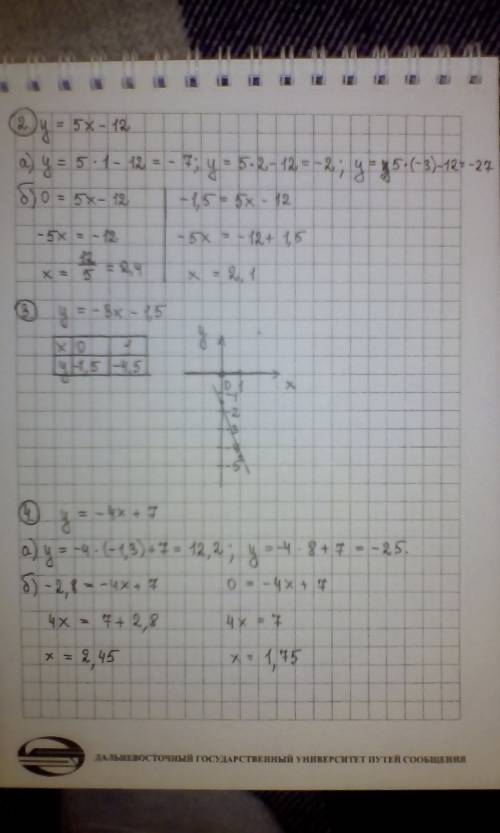 2. y = 5x - 12
а) y = 5 · 1 - 12 = - 7; y = 5 · 2 - 12 = -2; y = 5 · (-3) - 12 = -27
б) 0 = 5x - 12 -1,5 = 5x - 12
-5x = -12 -5x = -12 + 1,5
x = 12/5 = 2,4 x = 2,1
3 y = -3x - 1,5
x 0 1
y -1,5 -4,5
y
0 1 x
-1
-2
-3
-4
-5
4. y = -4x + 7
а) y = -4 · (-1,3) + 7 = 12,2; y = -4 · 8 + 7 = -25.
б) -2,8 = -4x + 7 0 = -4x + 7
4x = 7 + 2,8 4x = 7
x = 2,45 x = 1,75
ДАЛЬНЕВОСТОЧНЫЙ ГОСУДАРСТВЕННЫЙ УНИВЕРСИТЕТ ПУТЕЙ СООБЩЕНИЯ